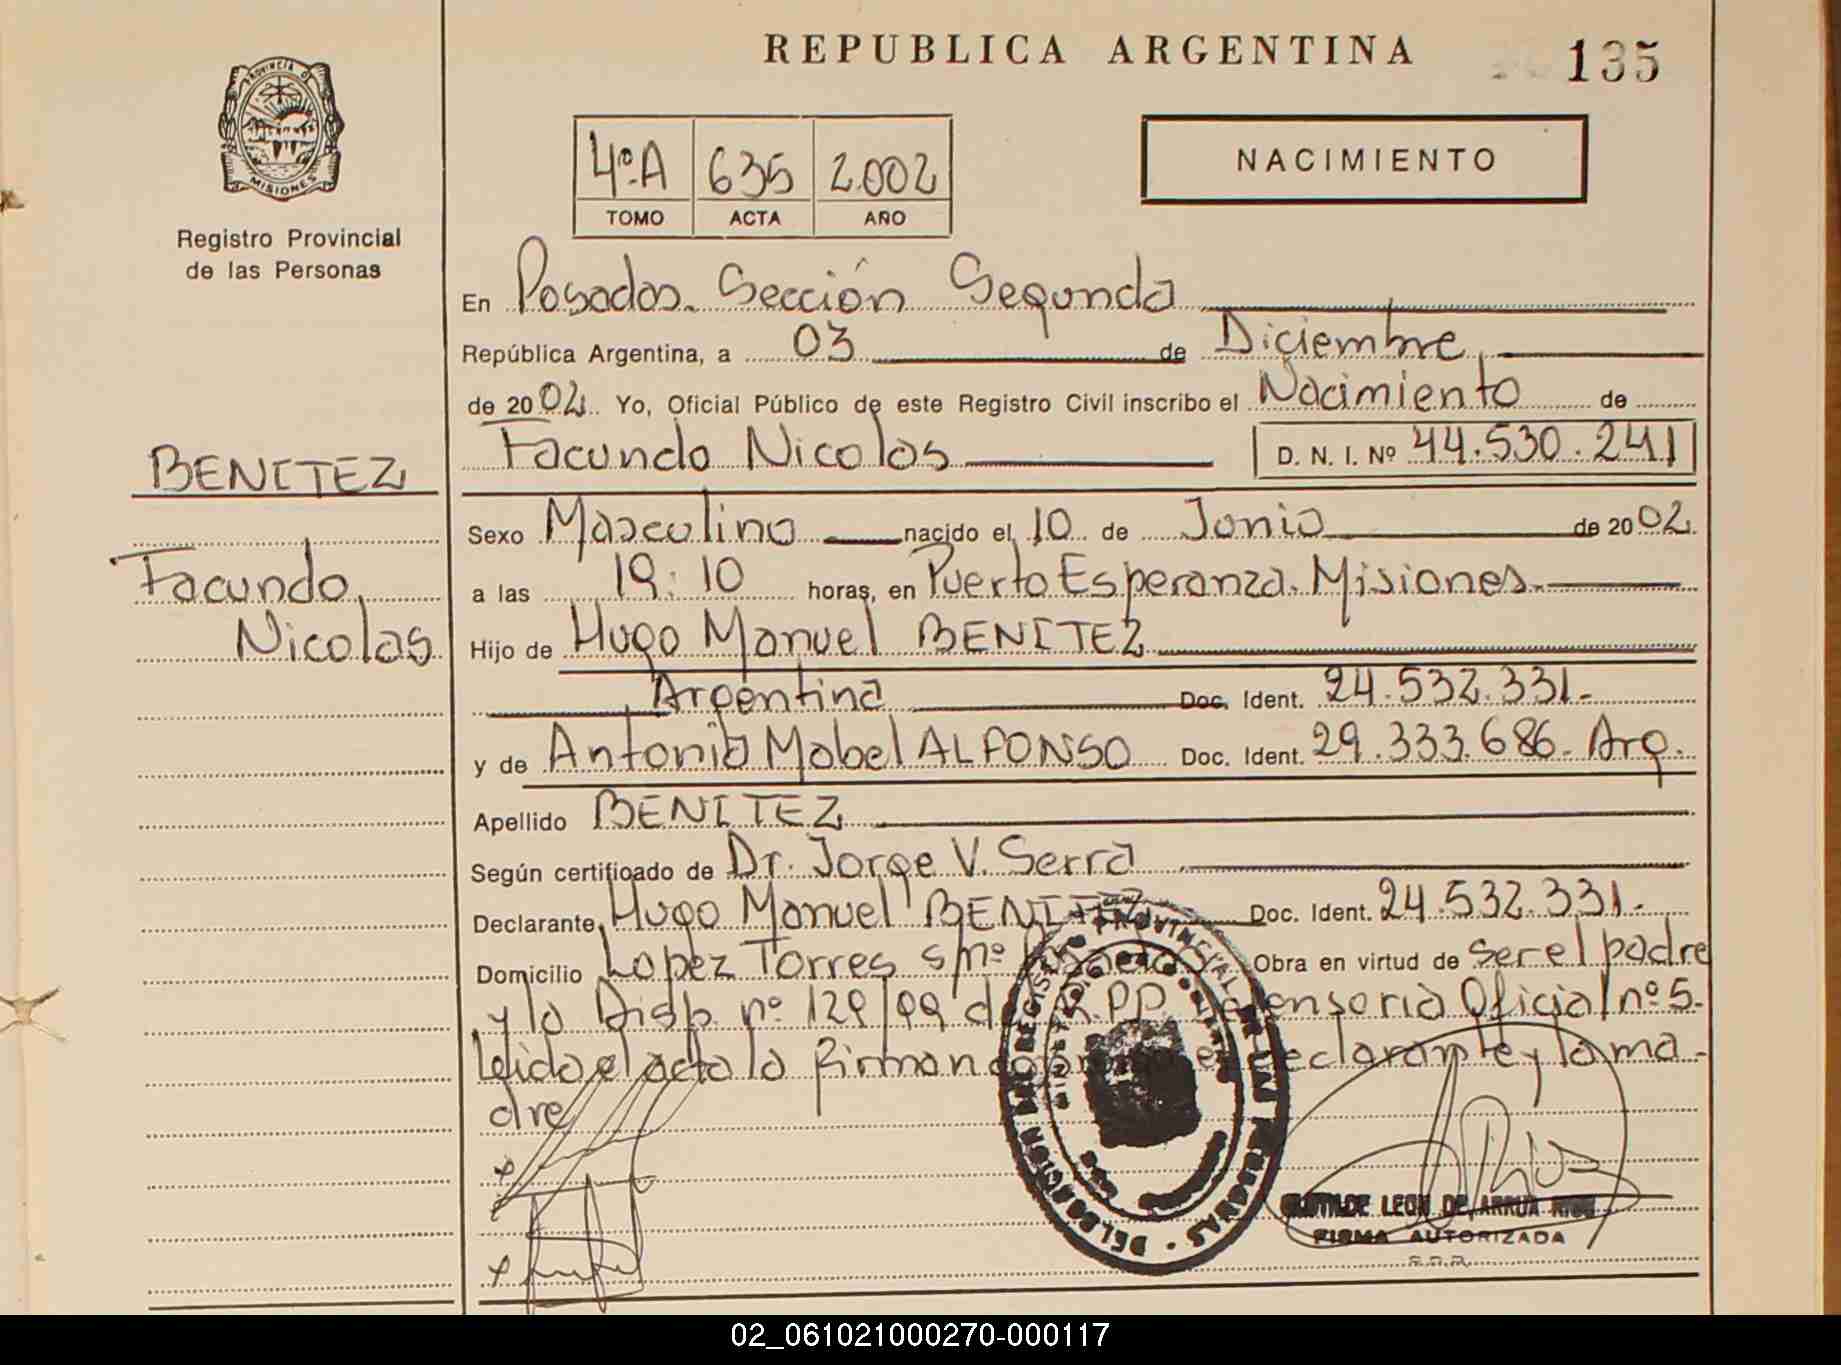 REPUBLICA ARGENTINA
135
PROVINCIA DE
MISIONES
Registro Provincial
de las Personas
4º A 635 2.002
TOMO ACTA AÑO
NACIMIENTO
En Posadas. Sección Segunda
República Argentina, a 03 de Diciembre
de 2002 Yo, Oficial Público de este Registro Civil inscribo el Nacimiento de
Facundo Nicolas D. N. I. Nº 44.530.241
BENITEZ
Facundo
Nicolas
Sexo Masculino nacido el 10 de Junio de 2002
a las 19:10 horas, en Puerto Esperanza. Misiones.
Hijo de Hugo Manuel BENITEZ
Argentina Doc. Ident. 24.532.331.
y de Antonia Mabel ALFONSO Doc. Ident. 29.333.686. Arg.
Apellido BENITEZ
Según certificado de Dr. Jorge V. Serra
Declarante Hugo Manuel BENITEZ Doc. Ident. 24.532.331.
Domicilio Lopez Torres s/nº Obra en virtud de ser el padre
y la Disp. nº 129/99 del R.PP. Defensoria Oficial nº 5.
Leida el acta la firman el declarante y la ma-
dre
LEON DE ARRUA
FIRMA AUTORIZADA
02_061021000270-000117